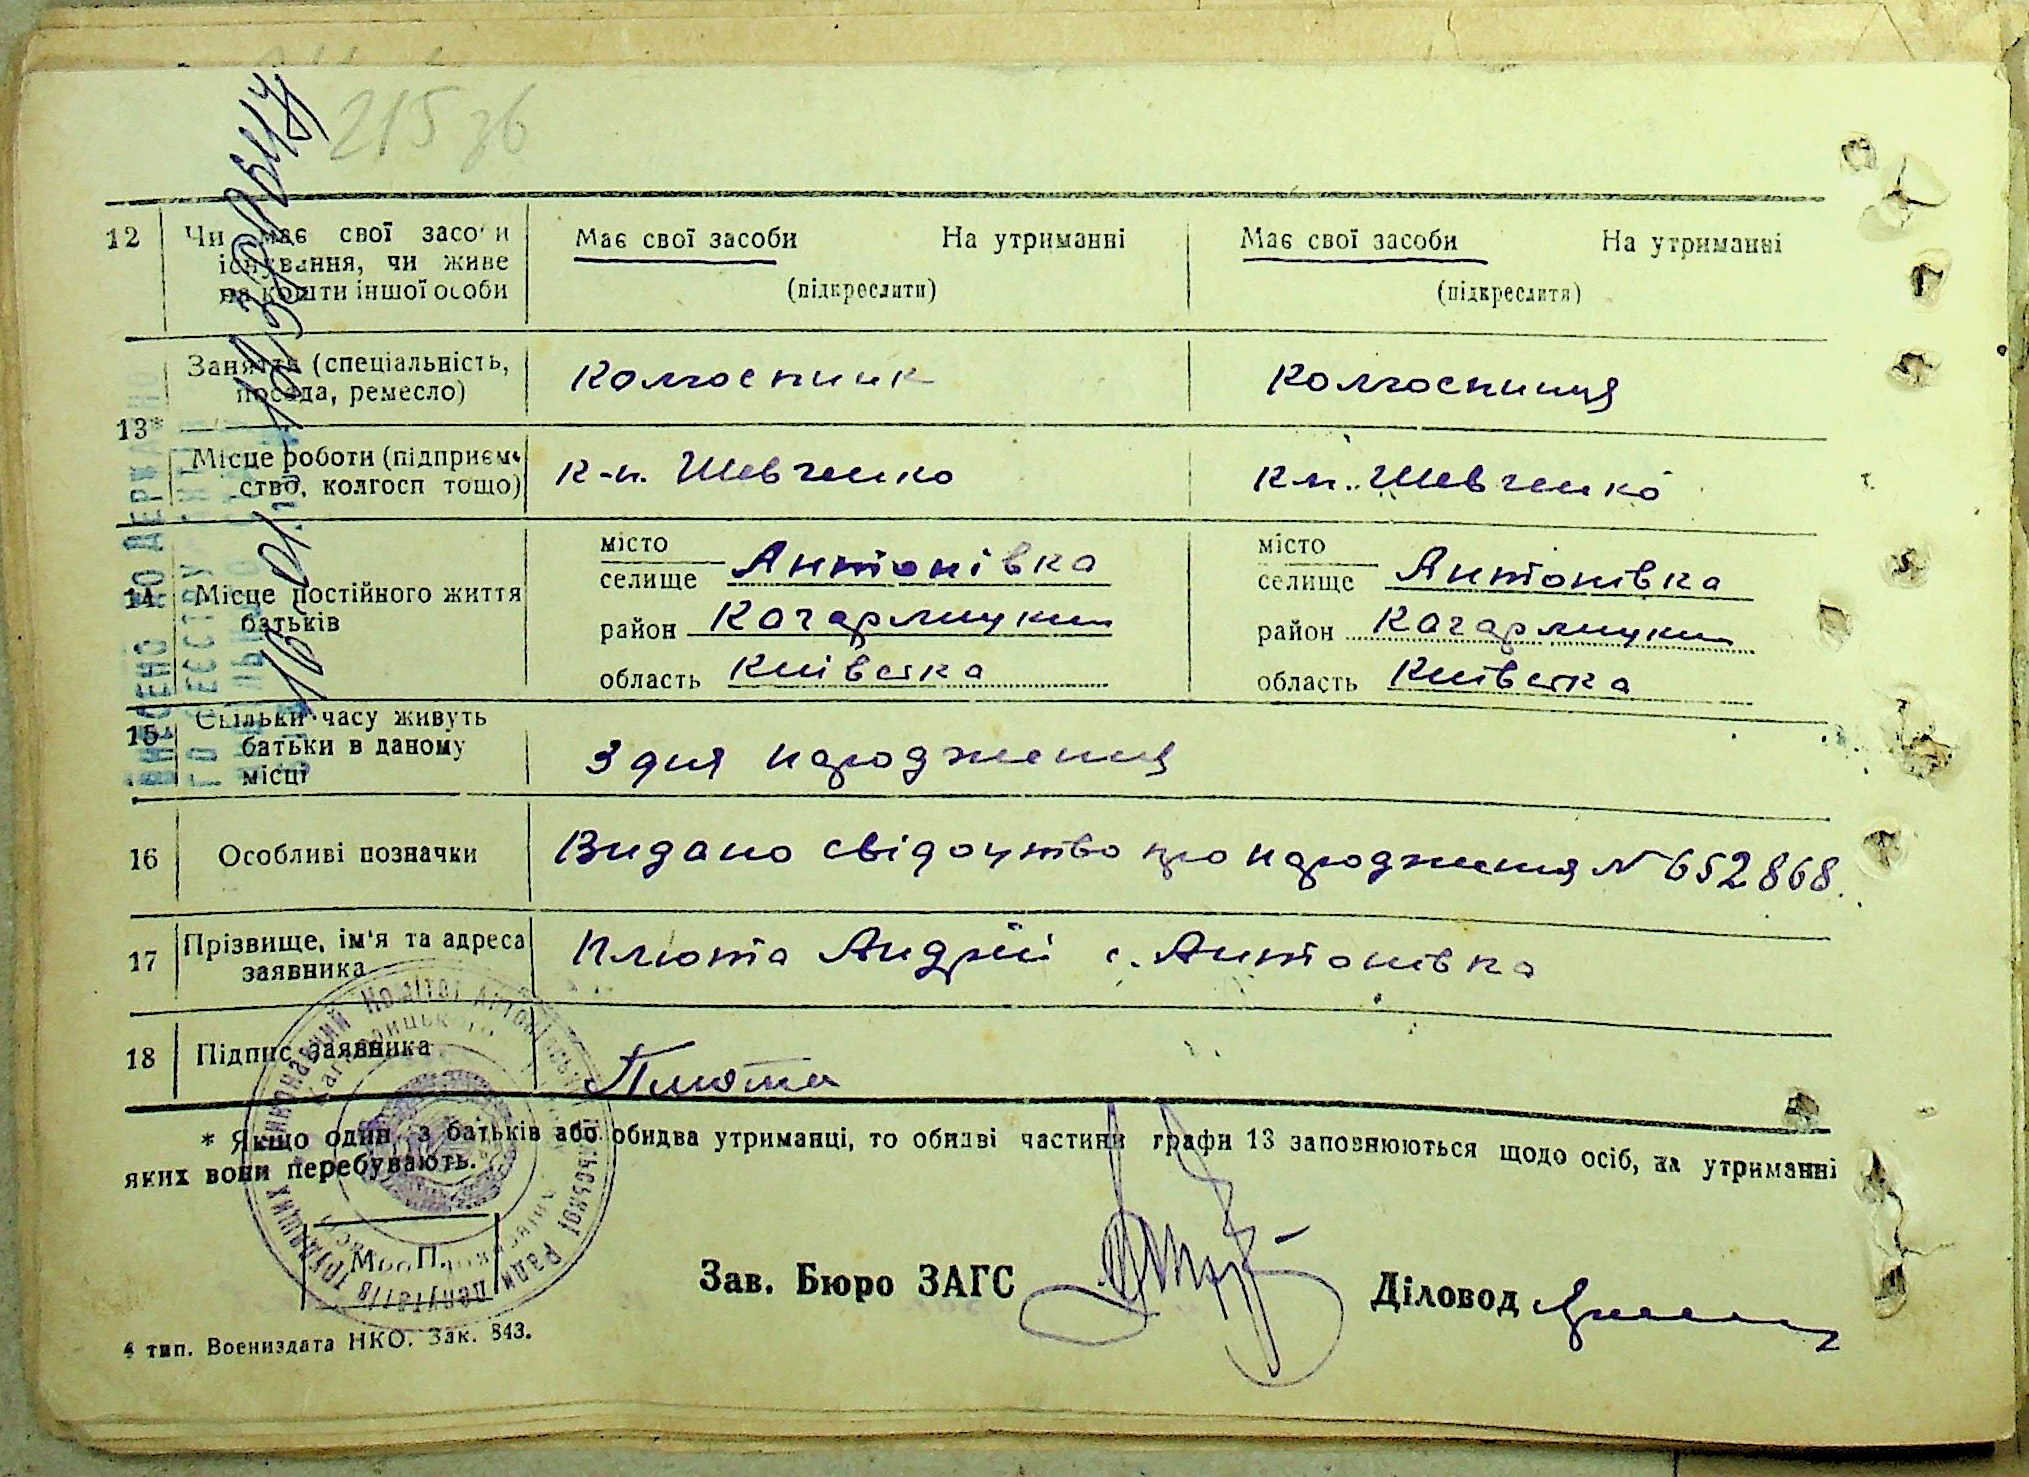 215 зв
12 Чи має свої засоби Має свої засоби На утриманні Має свої засоби На утриманні
існування, чи живе
на кошти іншої особи (підкреслити) (підкреслити)
Заняття (спеціальність, Колгоспник Колгоспниця
посада, ремесло)
13*
Місце роботи (підприєм- к-п. Шевченко к-п. Шевченко
ство, колгосп тощо)
місто місто
селище Антонівка селище Антонівка
14 Місце постійного життя район Кагарлицький район Кагарлицький
батьків
область Київська область Київська
15 Скільки часу живуть
батьки в даному З дня народження
місці
16 Особливі позначки Видано свідоцтво про народження № 652868.
17 Прізвище, ім'я та адреса Плюта Андрій с. Антонівка
заявника
18 Підпис заявника Плюта
* Якщо один з батьків або обидва утриманці, то обидві частини графи 13 заповнюються щодо осіб, на утриманні
яких вони перебувають.
М. П.
Зав. Бюро ЗАГС Діловод
4 тип. Воениздата НКО. Зак. 843.
ВНЕСЕНО ДО ДЕРЖАВНО
ГО РЕЄСТРУ